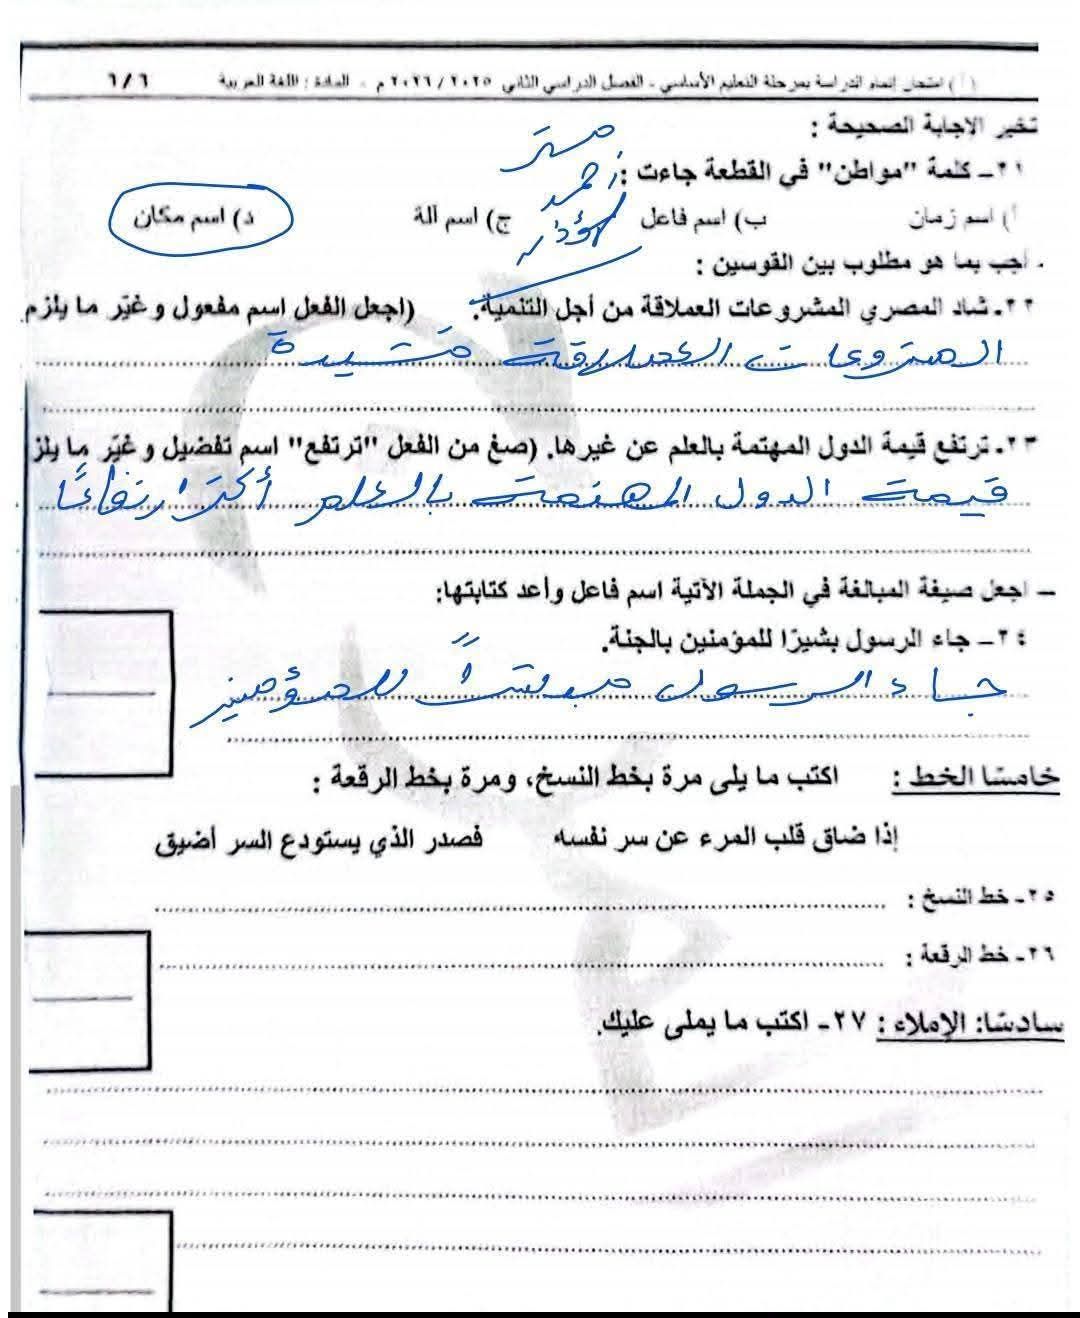 ( أ ) امتحان إتمام الدراسة بمرحلة التعليم الأساسي - الفصل الدراسي الثاني ٢٠٢٥ / ٢٠٢٦ م - المادة : اللغة العربية ٦/٦
تخير الإجابة الصحيحة :
مستر
٢١ـ كلمة "مواطن" في القطعة جاءت :
أحمد
أ) اسم زمان ب) اسم فاعل ج) اسم آلة د) اسم مكان
ـ أجب بما هو مطلوب بين القوسين :
٢٢ـ شاد المصري المشروعات العملاقة من أجل التنمية. (اجعل الفعل اسم مفعول وغيّر ما يلزم
المشروعات العملاقة مشيدة
٢٣ـ ترتفع قيمة الدول المهتمة بالعلم عن غيرها. (صغ من الفعل "ترتفع" اسم تفضيل وغيّر ما يلز
قيمة الدول المهتمة بالعلم أكثر ارتفاعًا
ـ اجعل صيغة المبالغة في الجملة الآتية اسم فاعل وأعد كتابتها:
٢٤ـ جاء الرسول بشيرًا للمؤمنين بالجنة.
جاء الرسول مبشرًا للمؤمنين
خامسًا الخط : اكتب ما يلى مرة بخط النسخ، ومرة بخط الرقعة :
إذا ضاق قلب المرء عن سر نفسه فصدر الذي يستودع السر أضيق
٢٥ـ خط النسخ :
٢٦ـ خط الرقعة :
سادسًا: الإملاء : ٢٧ـ اكتب ما يملى عليك.